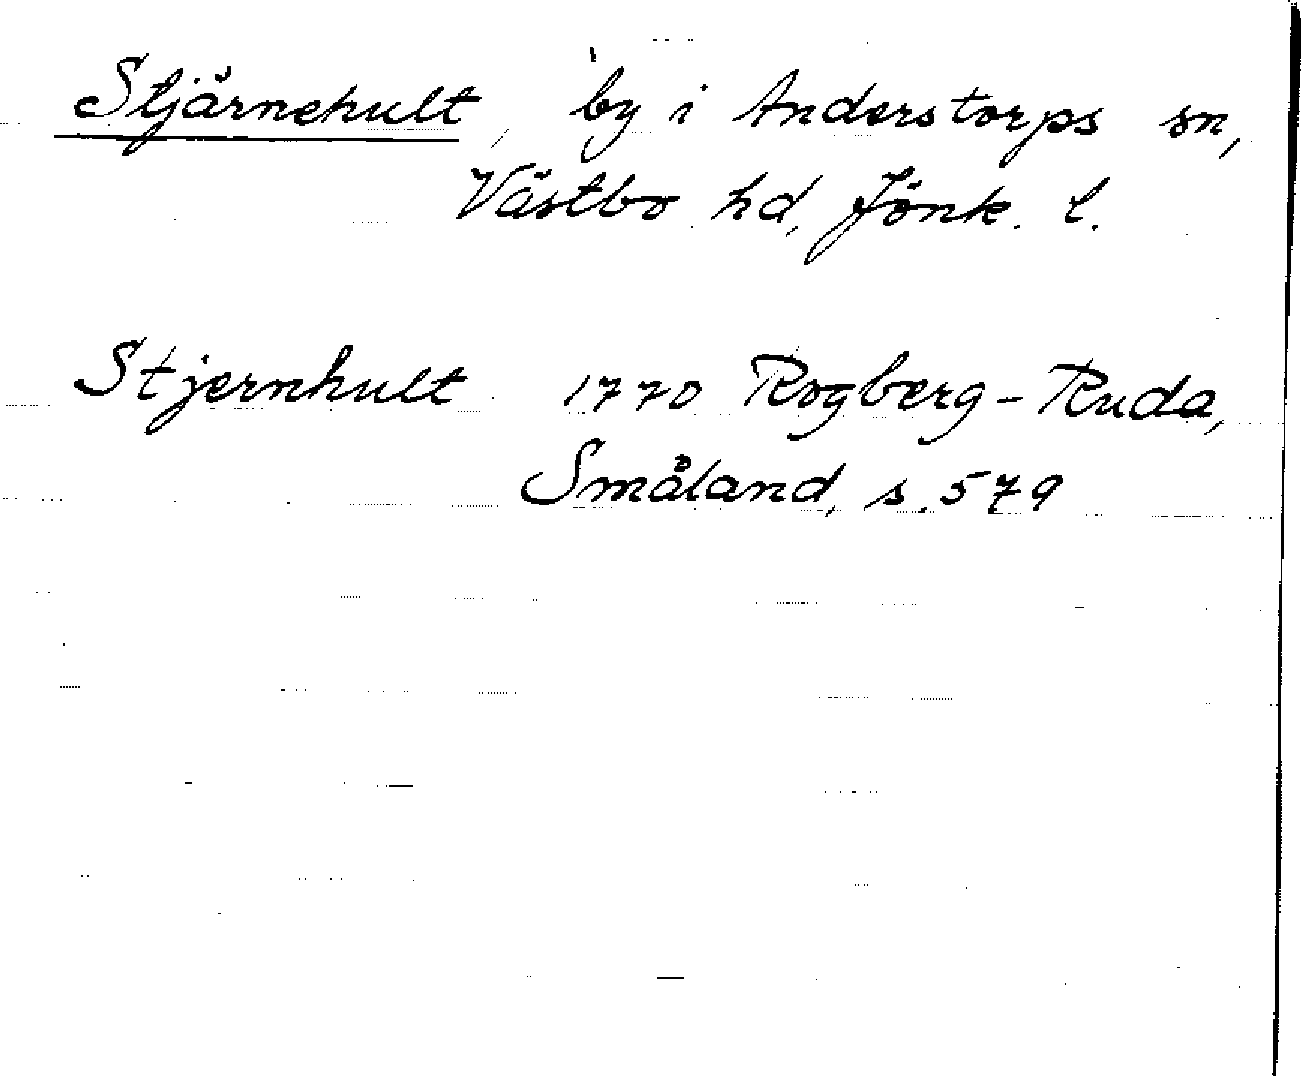 Stjärnehult, by i Anderstorps sn,
Västbo hd, Jönk. l.
Stjernhult 1770 Rogberg-Ruda,
Småland, s. 579